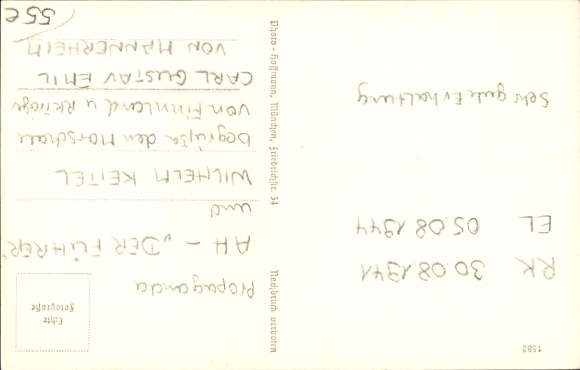 1582
RK 30.08.1941
EL 05.08.1944
Sehr gute Erhaltung
Nachdruck verboten
Photo-Hoffmann, München, Friedrichstr. 34
Echte
Fotografie
Propaganda
AH – „DER FÜHRER"
und
WILHELM KEITEL
begrüßen den Marschall
von Finnland u RKTräger
CARL GUSTAV EMIL
VON MANNERHEIM
55€